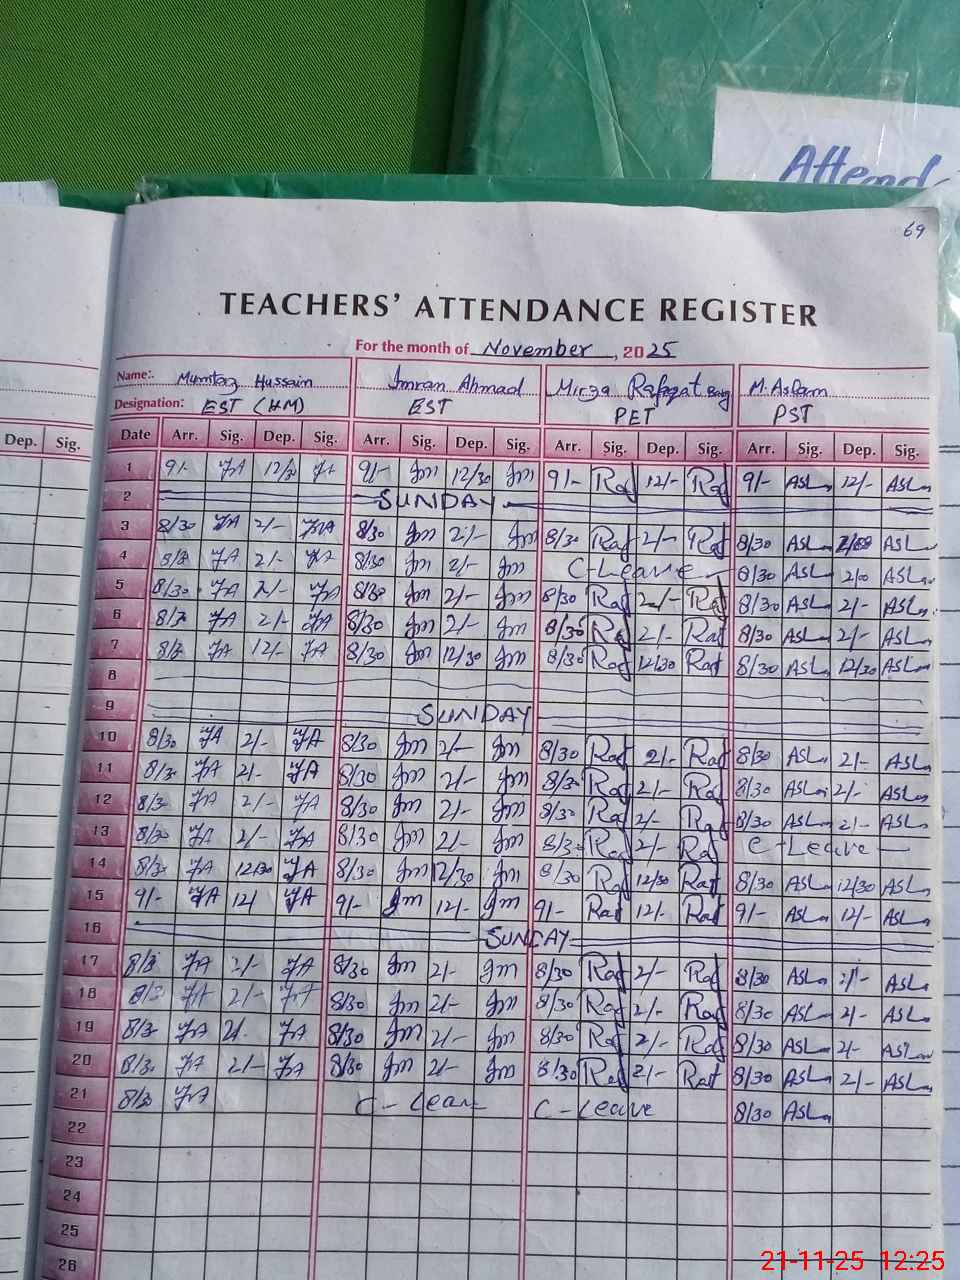 Attend
69
TEACHERS' ATTENDANCE REGISTER
For the month of November, 2025
Name:. Mumtaz Hussain Imran Ahmad Mirza Rafaqat Baig M. Aslam
Designation: EST (HM) EST PET PST
Dep. Sig. Date Arr. Sig. Dep. Sig. Arr. Sig. Dep. Sig. Arr. Sig. Dep. Sig. Arr. Sig. Dep. Sig.
1 9/- 12/30 9/- Im 12/30 Im 9/- Raf 12/- Raf 9/- ASL 12/- ASL
2 SUNDAY
3 8/30 2/- 8/30 Im 2/- Im 8/30 Raf 2/- Raf 8/30 ASL ASL
4 2/- 8/30 Im 2/- Im C-Leave 8/30 ASL 2/00 ASL
5 8/30 2/- Im 2/- Im 8/30 Raf 2/- Raf 8/30 ASL 2/- ASL
6 8/3 2/- 8/30 Im 2/- Im 8/30 Raf 2/- Raf 8/30 ASL 2/- ASL
7 8/3 12/- 8/30 Im 12/30 Im 8/30 Raf 12/30 Raf 8/30 ASL 12/30 ASL
8
9 SUNDAY
10 8/30 2/- 8/30 Im 2/- Im 8/30 Raf 2/- Raf 8/30 ASL 2/- ASL
11 8/3 2/- 8/30 Im 2/- Im 8/3 Raf 2/- Raf 8/30 ASL 2/- ASL
12 8/3 2/- 8/30 Im 2/- Im 8/30 Raf 2/- Raf 8/30 ASL 2/- ASL
13 8/30 2/- 8/30 Im 2/- Im 8/3 Raf 2/- Raf C-Leave
14 8/3 12/30 8/30 Im 12/30 Im 8/30 Raf 12/30 Raf 8/30 ASL 12/30 ASL
15 9/- 12/ 9/- Im 12/- Im 9/- Raf 12/- Raf 9/- ASL 12/- ASL
16 SUNDAY
17 8/3 2/- 8/30 Im 2/- Im 8/30 Raf 2/- Raf 8/30 ASL 2/- ASL
18 8/3 2/- 8/30 Im 2/- Im 8/30 Raf 2/- Raf 8/30 ASL 2/- ASL
19 8/3 2/- 8/30 Im 2/- Im 8/30 Raf 2/- Raf 8/30 ASL 2/- ASL
20 8/3 2/- 8/30 Im 2/- Im 8/30 Raf 2/- Raf 8/30 ASL 2/- ASL
21 8/30 C-Leave C-Leave 8/30 ASL
22
23
24
25
26
21-11-25 12:25